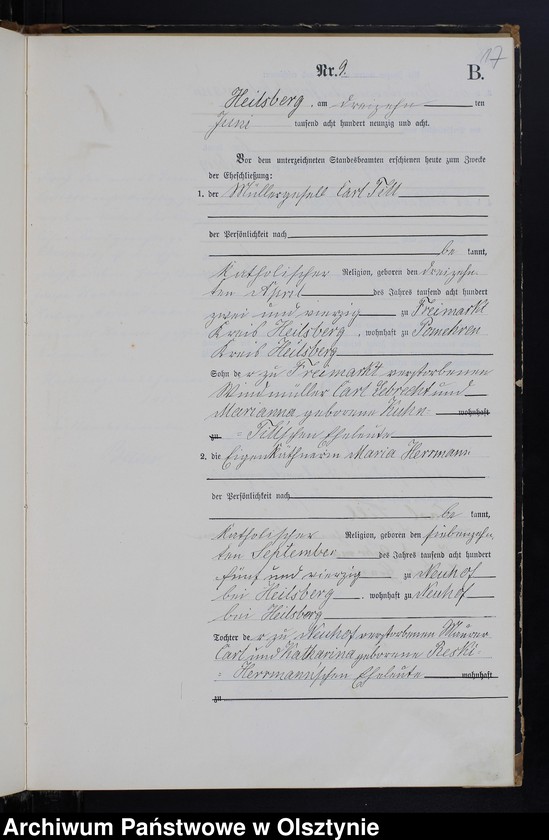 17
Nr. 9.
B.
Heilsberg, am dreizehn ten
Juni tausend acht hundert neunzig und acht.
Vor dem unterzeichneten Standesbeamten erschienen heute zum Zwecke
der Eheschließung:
1. der Müllergesell Carl Till
der Persönlichkeit nach
be kannt,
katholischer Religion, geboren den dreizehn
ten April des Jahres tausend acht hundert
zwei und vierzig zu Freimarkt
Kreis Heilsberg, wohnhaft zu Pomehren
Kreis Heilsberg
Sohn der zu Freimarkt verstorbenen
Windmüller Carl und
Marianna geborene Kuhn- wohnhaft
zu = Till'schen Eheleute
2. die Eigenkäthnerin Maria Herrmann
der Persönlichkeit nach
be kannt,
katholischer Religion, geboren den siebenzehn
ten September des Jahres tausend acht hundert
fünf und vierzig zu Neuhof
bei Heilsberg, wohnhaft zu Neuhof
bei Heilsberg
Tochter der zu Neuhof verstorbenen Maurer
Carl und Katharina geborene Reski-
= Herrmann'schen Eheleute wohnhaft
zu
Archiwum Państwowe w Olsztynie